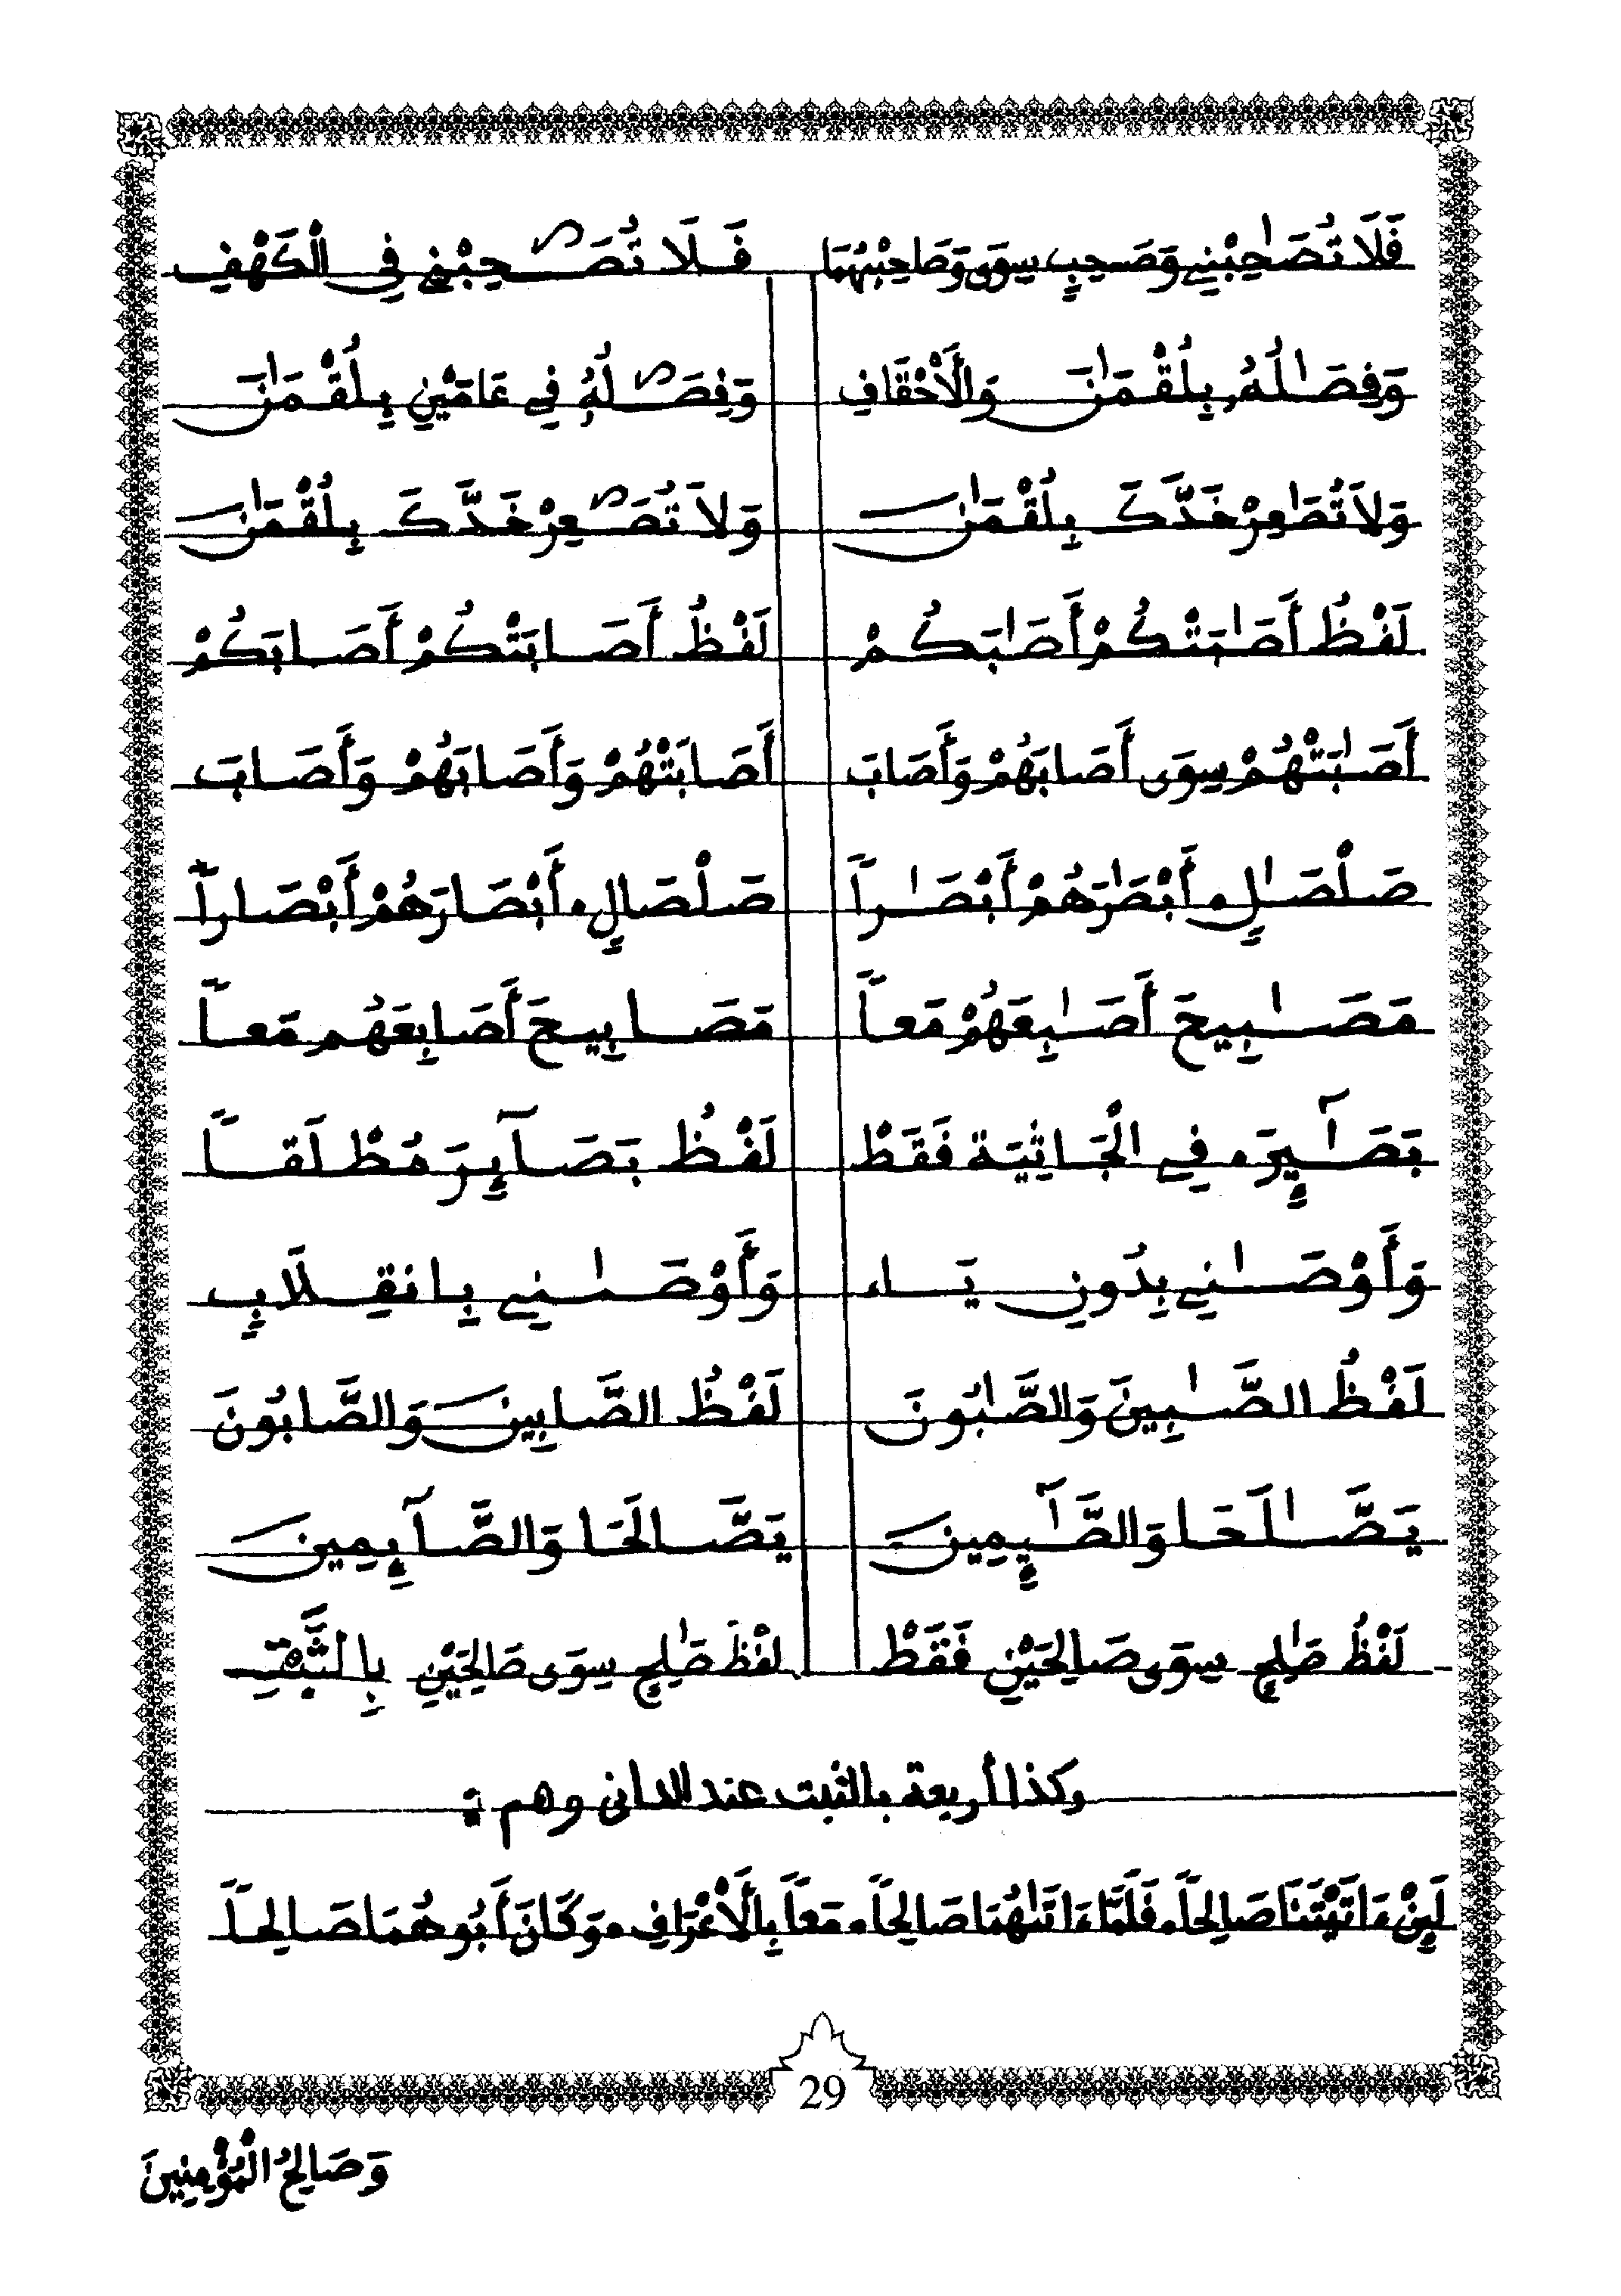 فَلَا تُصَٰحِبْنِي وَصَٰحِبٍ سِوَى وَصَاحِبْهُمَا فَلَا تُصَٰحِبْنِي فِي الْكَهْفِ
وَفِصَٰلُهُ بِلُقْمَٰنَ وَالْأَحْقَافِ وَفِصَٰلُهُ فِي عَامَيْنِ بِلُقْمَٰنَ
وَلَا تُصَٰعِرْ خَدَّكَ بِلُقْمَٰنَ وَلَا تُصَٰعِرْ خَدَّكَ بِلُقْمَٰنَ
لَفْظُ أَصَٰبَتْكُمْ أَصَٰبَكُمْ لَفْظُ أَصَابَتْكُمْ أَصَابَكُمْ
أَصَٰبَتْهُمْ سِوَى أَصَابَهُمْ وَأَصَابَ أَصَابَتْهُمْ وَأَصَابَهُمْ وَأَصَابَ
صَلْصَٰلٍ، أَبْصَٰرَهُمْ أَبْصَٰراً صَلْصَالٍ، أَبْصَارَهُمْ أَبْصَاراً
مَصَٰبِيحَ أَصَٰبِعَهُمْ مَعاً مَصَابِيحَ أَصَابِعَهُم مَعاً
بَصَٰٓئِرَ، فِي الْجَاثِيَة فَقَطْ لَفْظُ بَصَآئِرَ مُطْلَقاً
وَأَوْصَٰنِي بِدُونِ يَاء وَأَوْصَٰنِي بِانقِلَابٍ
لَفْظُ الصَّٰبِينَ وَالصَّٰبُونَ لَفْظُ الصَّابِينَ وَالصَّابُونَ
يَصَّٰلَحَا وَالصَّٰٓئِمِينَ يَصَّالَحَا وَالصَّآئِمِينَ
لَفْظُ صَٰلِحٍ سِوَى صَالِحَيْنِ فَقَطْ لَفْظَ صَٰلِحٍ سِوَى صَالِحَيْنِ بِالثَّبْتِ
وكذا أربعة بالثبت عند الداني وهم :
لَئِنْ ءَاتَيْتَنَا صَالِحاً، فَلَمَّا ءَاتَىٰهُمَا صَالِحاً، مَعاً بِالْأَعْرَافِ، وَكَانَ أَبُوهُمَا صَالِحاً
29
وَصَالِحُ الْمُؤْمِنِينَ